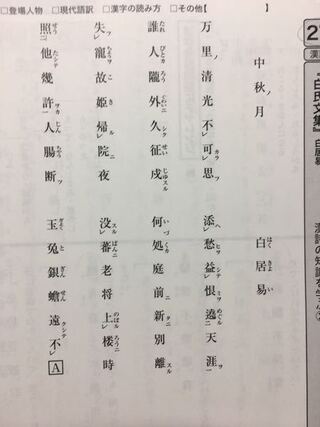 □登場人物 □現代語訳 □漢字の読み方 □その他【 】
『白氏文集』 白居易
中秋月 白居易
万里清光不可思 添愁益恨遶天涯
誰人隴外久征戍 何処庭前新別離
失寵故姫帰院夜 没蕃老将上楼時
照他幾許人腸断 玉兎銀蟾遠不A